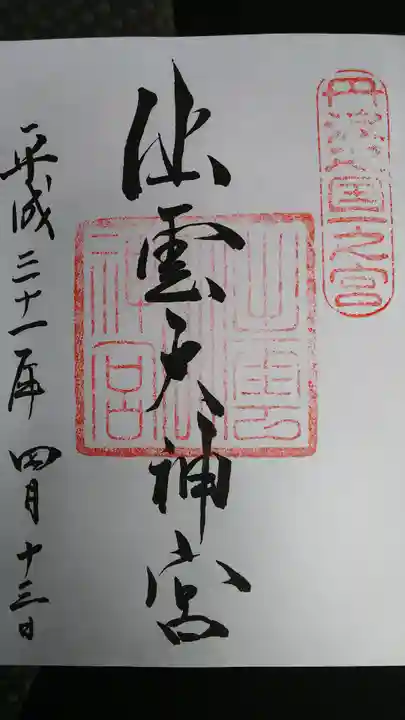 丹波國一之宮
出雲大神宮
平成三十一年四月十三日